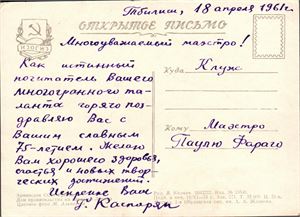 Тбилиси, 18 апреля 1961г.
ОТКРЫТОЕ ПИСЬМО
ИЗОГИЗ
Многоуважаемый маэстро!
Как истинный
почитатель Вашего
многогранного та-
ланта горячо поз-
дравляю Вас с
Вашим славным
75-летием. Желаю
Вам хорошего здоровья,
счастья и новых твор-
ческих достижений.
Искренне Ваш
Г. Каспарян
Куда Клуж
Кому Маэстро
Паулю Фараго